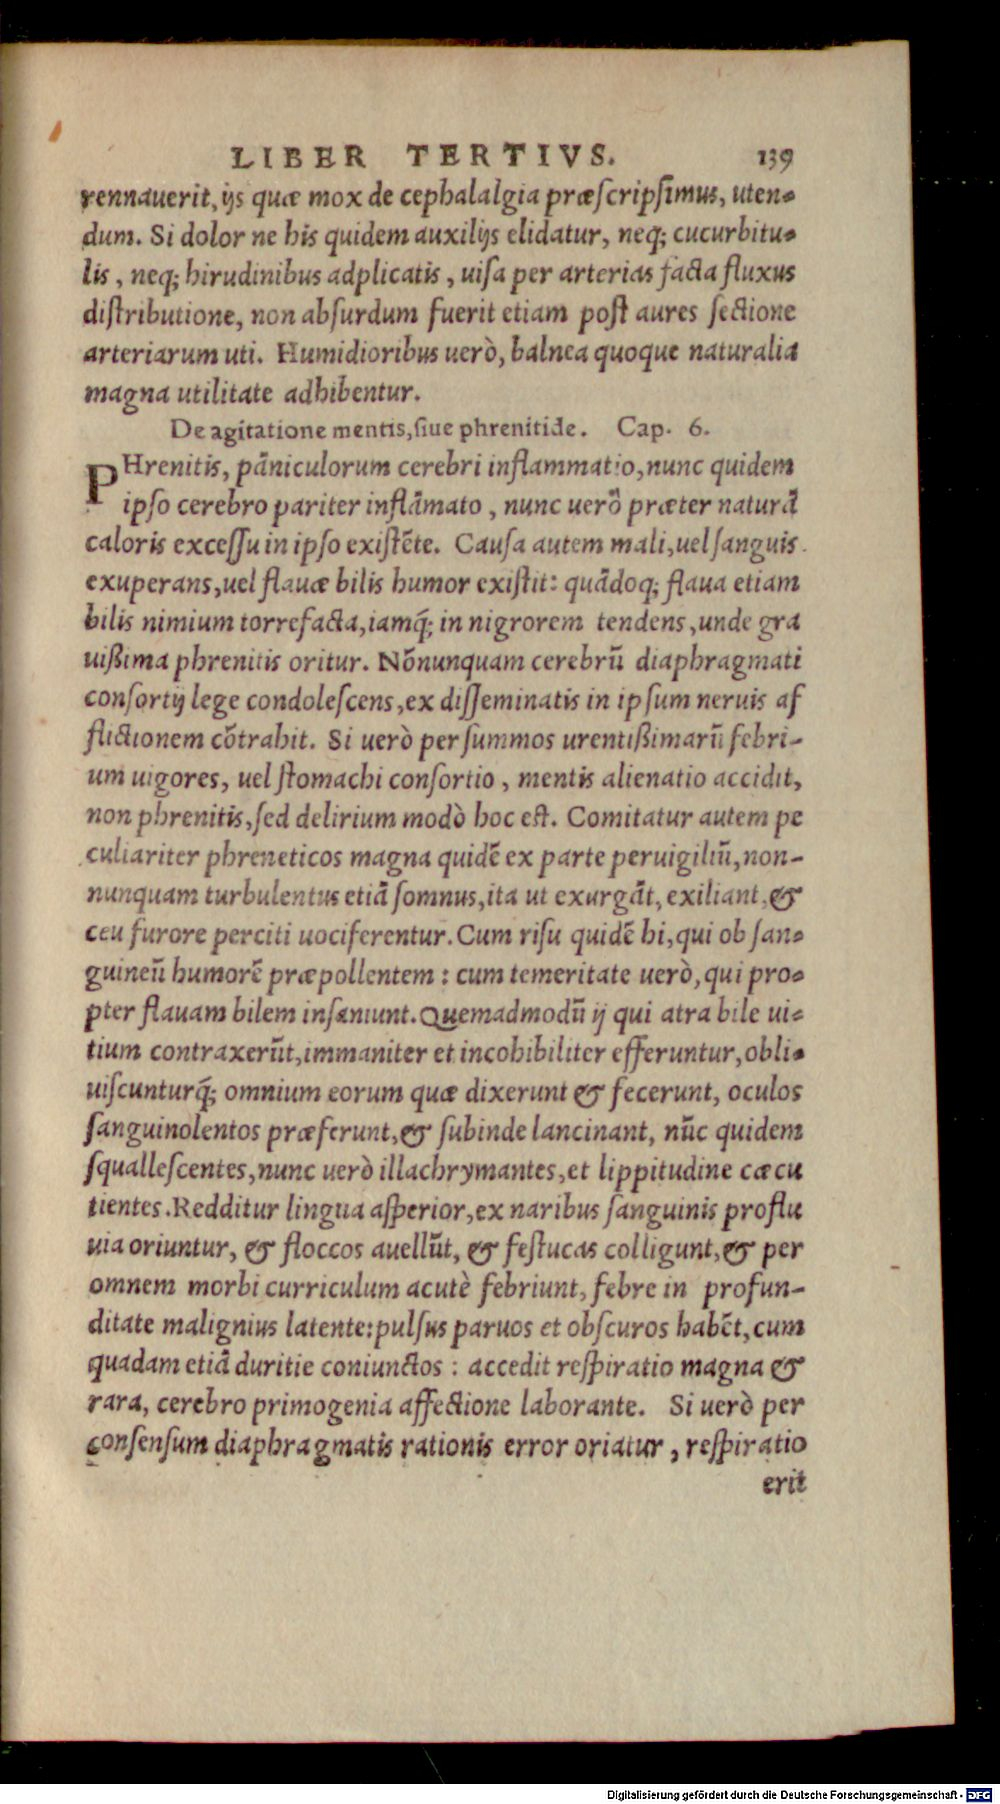 LIBER TERTIVS. 139
rennauerit, ijs quæ mox de cephalalgia præſcripſimus, uten-
dum. Si dolor ne his quidem auxilijs elidatur, neq; cucurbitu-
lis, neq; hirudinibus adplicatis, uiſa per arterias facta fluxus
diſtributione, non abſurdum fuerit etiam poſt aures ſectione
arteriarum uti. Humidioribus uerò, balnea quoque naturalia
magna utilitate adhibentur.
De agitatione mentis, ſiue phrenitide. Cap. 6.
PHrenitis, pāniculorum cerebri inflammatio, nunc quidem
ipſo cerebro pariter inflāmato, nunc uerò præter naturā
caloris exceſſu in ipſo exiſtēte. Cauſa autem mali, uel ſanguis
exuperans, uel flauæ bilis humor exiſtit: quādoq; flaua etiam
bilis nimium torrefacta, iamq́; in nigrorem tendens, unde gra
uißima phrenitis oritur. Nōnunquam cerebrū diaphragmati
conſortij lege condoleſcens, ex diſſeminatis in ipſum neruis af
flictionem cōtrahit. Si uerò per ſummos urentißimarū febri-
um uigores, uel ſtomachi conſortio, mentis alienatio accidit,
non phrenitis, ſed delirium modò hoc eſt. Comitatur autem pe
culiariter phreneticos magna quidē ex parte peruigiliū, non-
nunquam turbulentus etiā ſomnus, ita ut exurgāt, exiliant, &
ceu furore perciti uociferentur. Cum riſu quidē hi, qui ob ſan-
guineū humorē præpollentem: cum temeritate uerò, qui pro-
pter flauam bilem inſaniunt. Quemadmodū ij qui atra bile ui-
tium contraxerūt, immaniter et incohibiliter efferuntur, obli-
uiſcunturq́; omnium eorum quæ dixerunt & fecerunt, oculos
ſanguinolentos præferunt, & ſubinde lancinant, nūc quidem
ſqualleſcentes, nunc uerò illachrymantes, et lippitudine cæcu
tientes. Redditur lingua aſperior, ex naribus ſanguinis proflu
uia oriuntur, & floccos auellūt, & feſtucas colligunt, & per
omnem morbi curriculum acutè febriunt, febre in profun-
ditate malignius latente: pulſus paruos et obſcuros habēt, cum
quadam etiā duritie coniunctos: accedit reſpiratio magna &
rara, cerebro primogenia affectione laborante. Si uerò per
conſenſum diaphragmatis rationis error oriatur, reſpiratio
erit
Digitalisierung gefördert durch die Deutsche Forschungsgemeinschaft - DFG